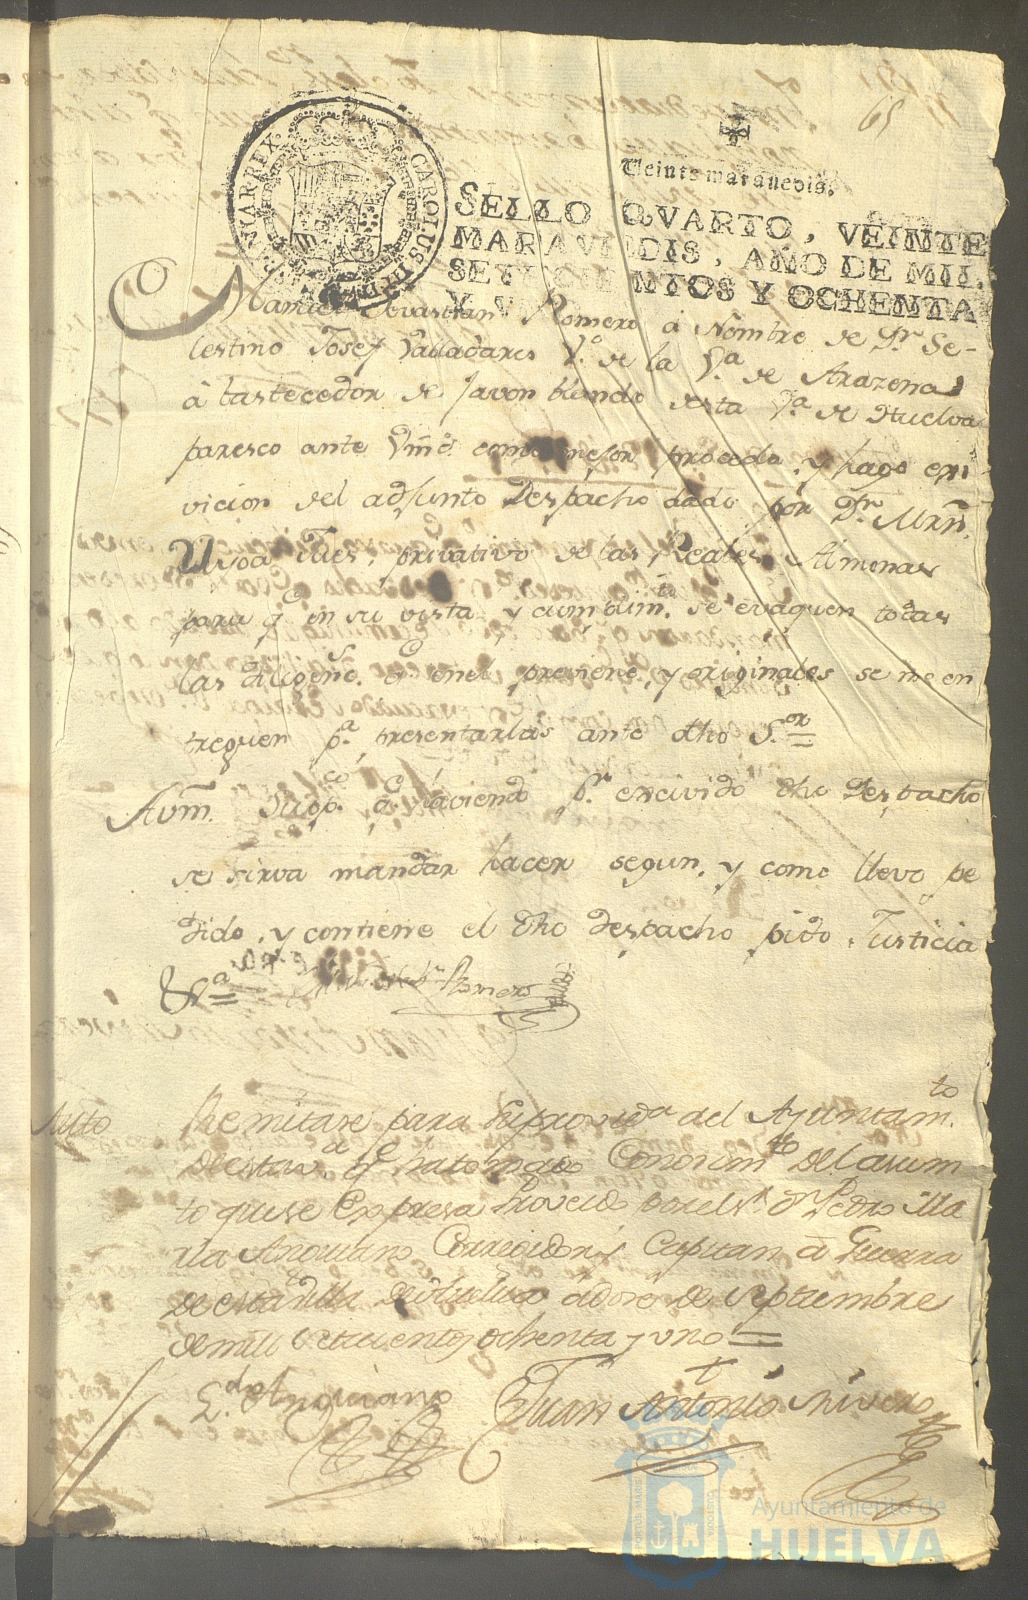 65
Veinte maravedis.
SELLO QVARTO, VEINTE
MARAVEDIS, AÑO DE MIL
SETECIENTOS Y OCHENTA
Y VNO
CAROLUS
HISPANIAR. REX
Manuel Sevastian Romero à Nombre de Dn. Se-
lestino Josef Valladares Vo. de la Va. de Arazena
à bastecedor de Javon blando desta Va. de Huelva
paresco ante Vmd. como mejor proceda, y hago exi-
vicion del adjunto Despacho dado por Dn. Mrn.
Ulloa Jues, privativo de las Reales Almonas
para q en su vista y cumplimto. se evaquen todas
las Diligens. q en el previene, y originales se me en
treguen pa. presentarlas ante dho Sor. =
A Vm. Supco. q haviendo pr. excivido dho Despacho
se sirva mandar hacer segun, y como llevo pe
dido, y contiene el dho despacho pido Justicia
&a =
Romero
Auto
Remitase para su provida. del Ayuntamto.
de esta va. qe ha tomado Conocimto. del asum
to que se Expresa Proveido por el Sr. Dn. Pedro Ma
ria Anguiano Corregidor y Capitan à Guerra
de esta villa de Huelva à dose de Septiembre
de mill setecientos ochenta y uno =
Ldo. Anguiano
Juan Antonio Rivero
Ayuntamiento de
HUELVA